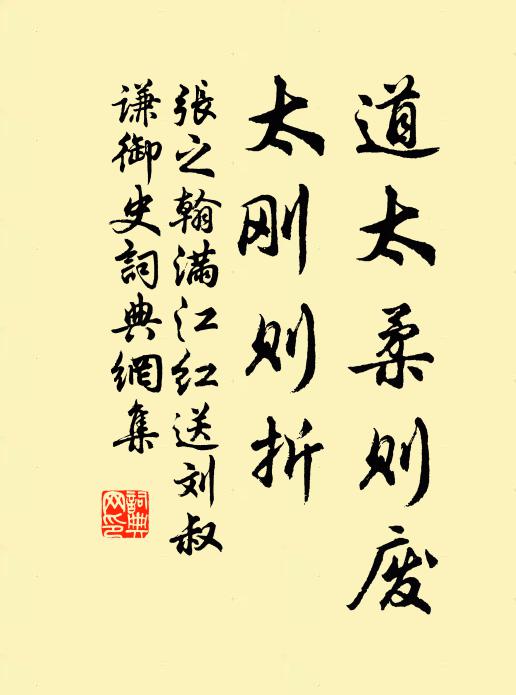 道太柔则废
太刚则折
張之翰满江红送刘叔
谦御史詞典網集
詞典
网印